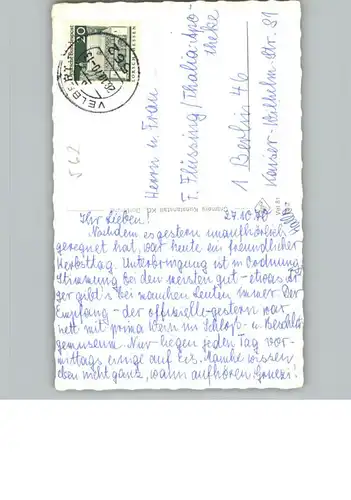 Herrn u. Frau
F. Flüssing/Thalia-Apo-
theke
1 Berlin 46
Kaiser-Wilhelm-Str. 91
562
VELBERT
Cramers Kunstanstalt KG, Dortmund
Ihr Lieben! 27.10.70
Nachdem es gestern unaufhörlich
geregnet hat, war heute ein freundlicher
Herbsttag. Unterbringung ist in Ordnung
Stimmung bei den meisten gut - etwas Är-
ger gibt's bei manchen Leuten immer. Der
Empfang - der offizielle - gestern war
nett mit prima Wein im Schloß- u. Beschlä-
gemuseum. Nur liegen jeden Tag vor-
mittags einige auf Eis. Manche wissen
eben nicht ganz, wann aufhören